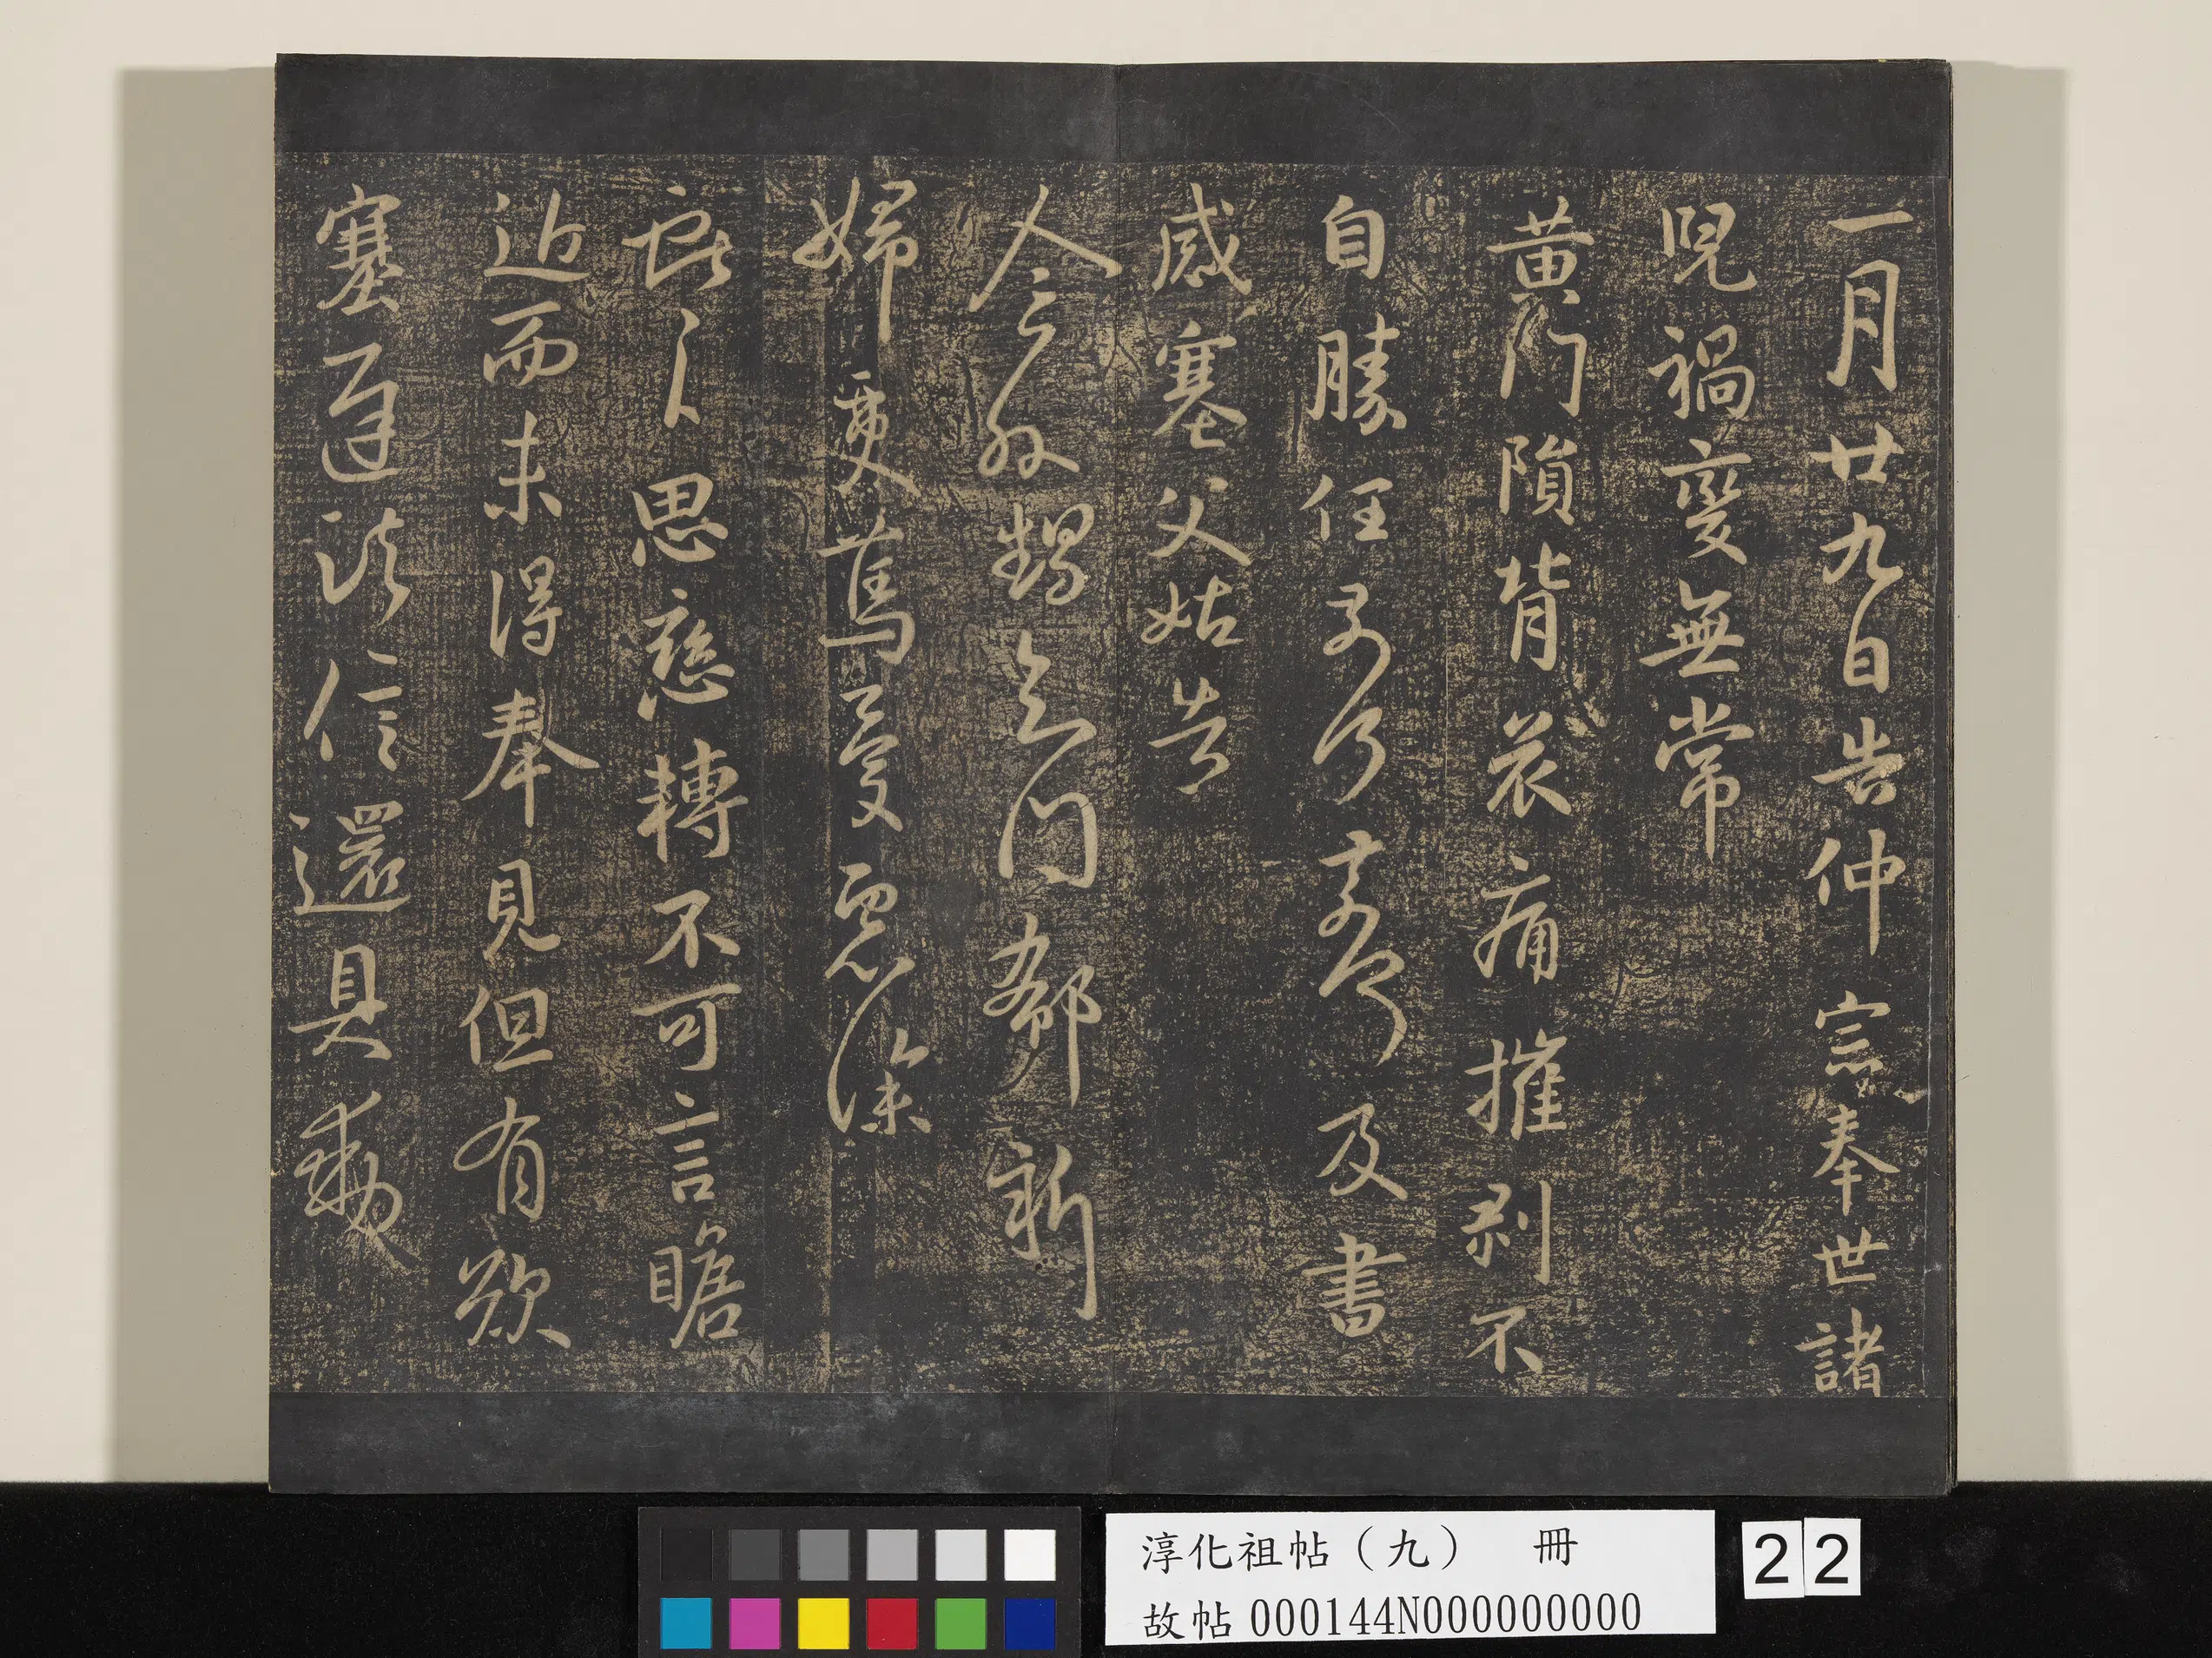 一月廿九日告仲宗奉世諸
兒禍變無常
黃門隕背哀痛摧剝不
自勝任奈何奈何及書
感塞父姑告
今外甥知問郗新
婦更篤憂慮深
思戀轉不可言瞻
近而未得奉見但有歎
塞遲信還具動
淳化祖帖（九） 冊
故帖 000144N000000000
22